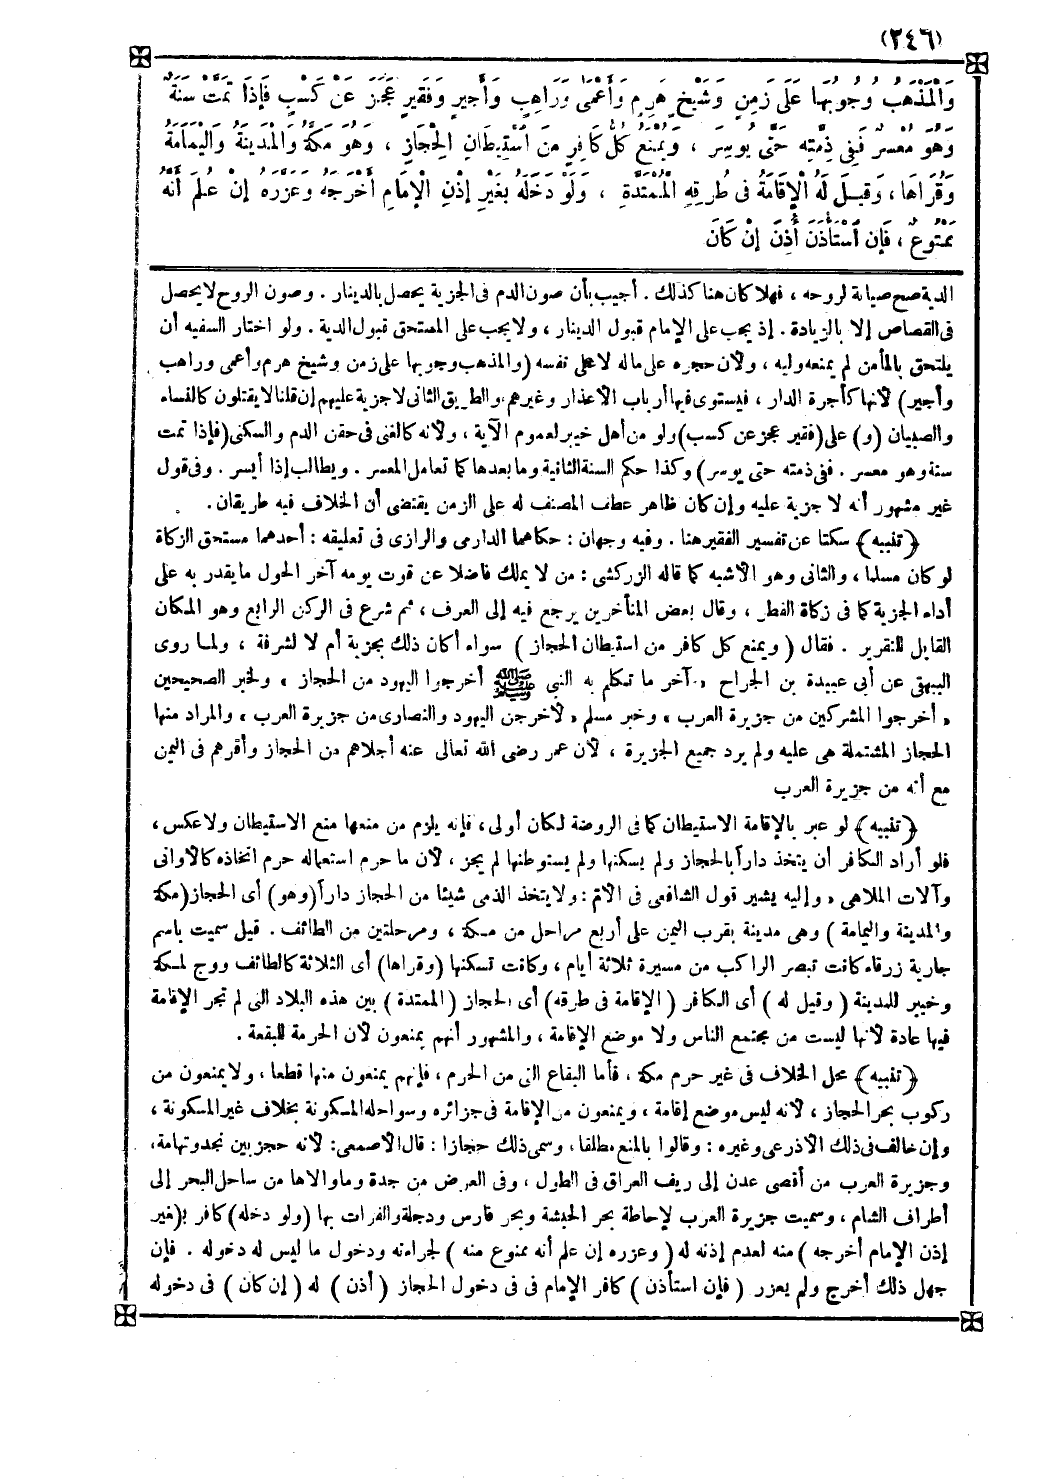 (٢٤٦)
وَالْمَذْهَبُ وُجُوبُهَا عَلَى زَمِنٍ وَشَيْخٍ هَرِمٍ وَأَعْمَى وَرَاهِبٍ وَأَجِيرٍ وَفَقِيرٍ عَجَزَ عَنْ كَسْبٍ فَإِذَا تَمَّتْ سَنَةٌ
وَهُوَ مُعْسِرٌ فَفِي ذِمَّتِهِ حَتَّى يُوسِرَ ، وَيُمْنَعُ كُلُّ كَافِرٍ مِنَ اسْتِيطَانِ الْحِجَازِ ، وَهُوَ مَكَّةُ وَالْمَدِينَةُ وَالْيَمَامَةُ
وَقُرَاهَا ، وَقِيلَ لَهُ الْإِقَامَةُ فى طُرُقِهِ الْمُمْتَدَّةِ ، وَلَوْ دَخَلَهُ بِغَيْرِ إِذْنِ الْإِمَامِ أَخْرَجَهُ وَعَزَّرَهُ إِنْ عَلِمَ أَنَّهُ
مَمْنُوعٌ ، فَإِنِ اسْتَأْذَنَ أُذِنَ إِنْ كَانَ
الدية صح صيانة لروحه ، فهلا كان هنا كذلك . أجيب بأن صون الدم فى الجزية يحصل بالدينار . وصون الروح لا يحصل
فى القصاص إلا بالزيادة . إذ يجب على الإمام قبول الدينار ، ولا يجب على المستحق قبول الدية . ولو اختار السفيه أن
يلتحق بالمأمن لم يمنعه وليه ، ولأن حجره على ماله لا على نفسه (والمذهب وجوبها على زمن وشيخ هرم وأعمى وراهب
وأجير) لأنها كأجرة الدار ، فيستوى فيها أرباب الأعذار وغيرهم ، والطريق الثانى لا جزية عليهم إن قلنا لا يقتلون كالنساء
والصبيان (و) على (فقير عجز عن كسب) ولو من أهل خيبر لعموم الآية ، ولأنه كالغنى فى حقن الدم والسكنى (فإذا تمت
سنة وهو معسر . ففى ذمته حتى يوسر) وكذا حكم السنة الثانية وما بعدها كما تعامل المعسر . ويطالب إذا أيسر . وفى قول
غير مشهور أنه لا جزية عليه وإن كان ظاهر عطف المصنف له على الزمن يقتضى أن الخلاف فيه طريقان .
﴿ تنبيه ﴾ سكتا عن تفسير الفقير هنا . وفيه وجهان : حكاهما الدارمى والرازى فى تعليقه : أحدهما مستحق الزكاة
لو كان مسلما ، والثانى وهو الأشبه كما قاله الزركشى : من لا يملك فاضلا عن قوت يومه آخر الحول ما يقدر به على
أداء الجزية كما فى زكاة الفطر ، وقال بعض المتأخرين يرجع فيه إلى العرف ، ثم شرع فى الركن الرابع وهو المكان
القابل للتقرير . فقال (ويمنع كل كافر من استيطان الحجاز) سواء أكان ذلك بجزية أم لا لشرفة ، ولما روى
البيهقى عن أبى عبيدة بن الجراح « آخر ما تكلم به النبى ﷺ أخرجوا اليهود من الحجاز » ولخبر الصحيحين
« أخرجوا المشركين من جزيرة العرب » وخبر مسلم « لأخرجن اليهود والنصارى من جزيرة العرب » والمراد منها
الحجاز المشتملة هى عليه ولم يرد جميع الجزيرة ، لأن عمر رضى الله تعالى عنه أجلاهم من الحجاز وأقرهم فى اليمن
مع أنه من جزيرة العرب
﴿ تنبيه ﴾ لو عبر بالإقامة الاستيطان كما فى الروضة لكان أولى ، فإنه يلزم من منعها منع الاستيطان ولا عكس ،
فلو أراد الكافر أن يتخذ داراً بالحجاز ولم يسكنها ولم يستوطنها لم يجز ، لأن ما حرم استعماله حرم اتخاذه كالأوانى
وآلات الملاهى ، وإليه يشير قول الشافعى فى الأم : ولا يتخذ الذمى شيئا من الحجاز داراً (وهو) أى الحجاز (مكة
والمدينة واليمامة) وهى مدينة بقرب اليمن على أربع مراحل من مكة ، ومرحلتين من الطائف . قيل سميت باسم
جارية زرقاء كانت تبصر الراكب من مسيرة ثلاثة أيام ، وكانت تسكنها (وقراها) أى الثلاثة كالطائف ووج لمكة
وخيبر للمدينة (وقيل له) أى الكافر (الإقامة فى طرقه) أى الحجاز (الممتدة) بين هذه البلاد التى لم تجر الإقامة
فيها عادة لأنها ليست من مجتمع الناس ولا موضع الإقامة ، والمشهور أنهم يمنعون لأن الحرمة للبقعة .
﴿ تنبيه ﴾ محل الخلاف فى غير حرم مكة ، فأما البقاع التى من الحرم ، فإنهم يمنعون منها قطعا ، ولا يمنعون من
ركوب بحر الحجاز ، لأنه ليس موضع إقامة ، ويمنعون من الإقامة فى جزائره وسواحله المسكونة بخلاف غير المسكونة ،
وإن خالف فى ذلك الأذرعى وغيره : وقالوا بالمنع مطلقا ، وسمى ذلك حجازا : قال الأصمعى : لأنه حجز بين نجد وتهامة ،
وجزيرة العرب من أقصى عدن إلى ريف العراق فى الطول ، وفى العرض من جدة وما والاها من ساحل البحر إلى
أطراف الشام ، وسميت جزيرة العرب لإحاطة بحر الحبشة وبحر فارس ودجلة والفرات بها (ولو دخله) كافر (بغير
إذن الإمام أخرجه) منه لعدم إذنه له (وعزره إن علم أنه ممنوع منه) لجراءته ودخول ما ليس له دخوله . فإن
جهل ذلك أخرج ولم يعزر (فإن استأذن) كافر الإمام فى فى دخول الحجاز (أذن) له (إن كان) فى دخوله